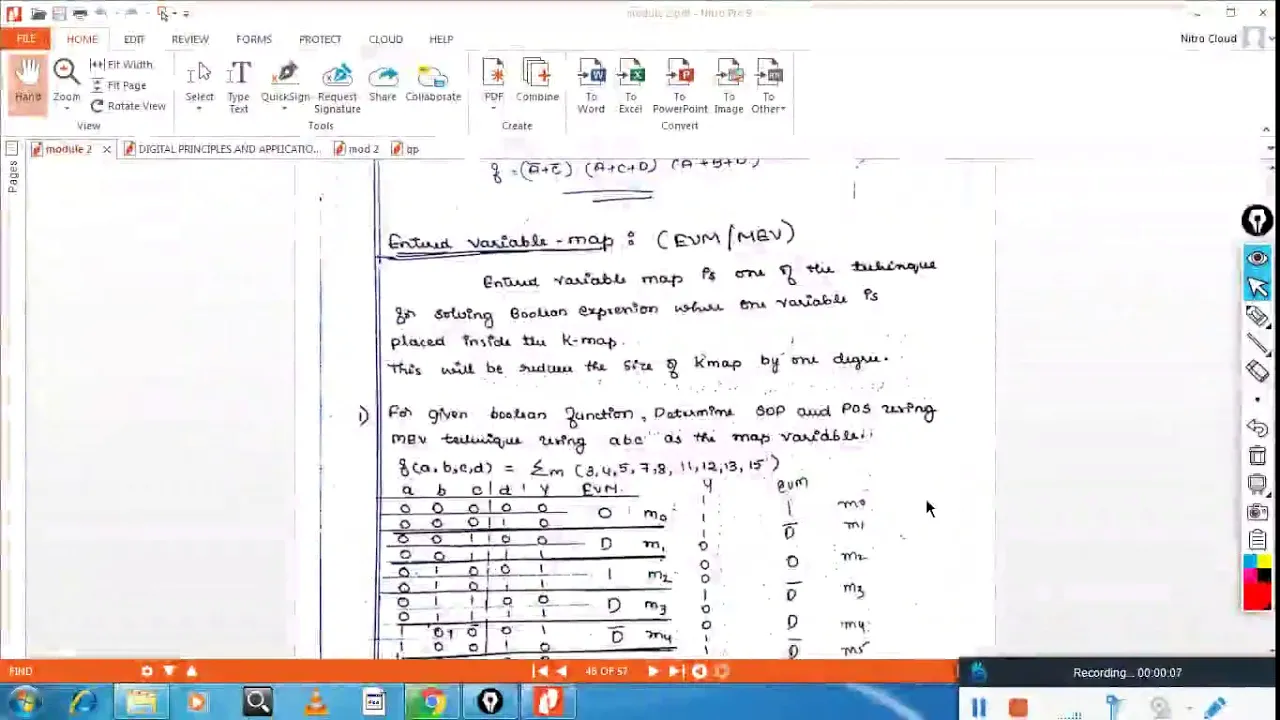 module 2.pdf - Nitro Pro 9
FILE HOME EDIT REVIEW FORMS PROTECT CLOUD HELP Nitro Cloud
Hand Zoom Fit Width Fit Page Rotate View Select Type Text QuickSign Request Signature Share Collaborate PDF Combine To Word To Excel To PowerPoint To Image To Other
View Tools Create Convert
module 2 × DIGITAL PRINCIPLES AND APPLICATIO... mod 2 qp
Pages
(A̅+C̅) (A+C+D)
Entured variable-map : (EVM/MEV)
Entured variable map is one of the tuhinque
for solving Boolean exprenion where one variable is
placed inside the K-map.
This will be reduce the size of Kmap by one degree.
1) For given boolean function, Determine SOP and POS using
MEV technique using abc as the map variable.
f(a,b,c,d) = Σm (3,4,5,7,8,11,12,13,15)
a b c d y EVM. Y EVM
0 0 0 0 0
0 0 0 1 0 0 m0 1 1 1 m0
0 0 1 0 0 D̅ m1
0 0 1 1 1 D m1 0
0 1 0 0 1 0 0 m2
0 1 0 1 1 1 m2 0
0 1 1 0 0 1 D̅ m3
0 1 1 1 1 D m3 0
1 0 0 0 1 D̅ m4 0 D m4
1 0 0 1 0 1 D̅ m5
FIND 46 OF 57
Recording... 00:00:07